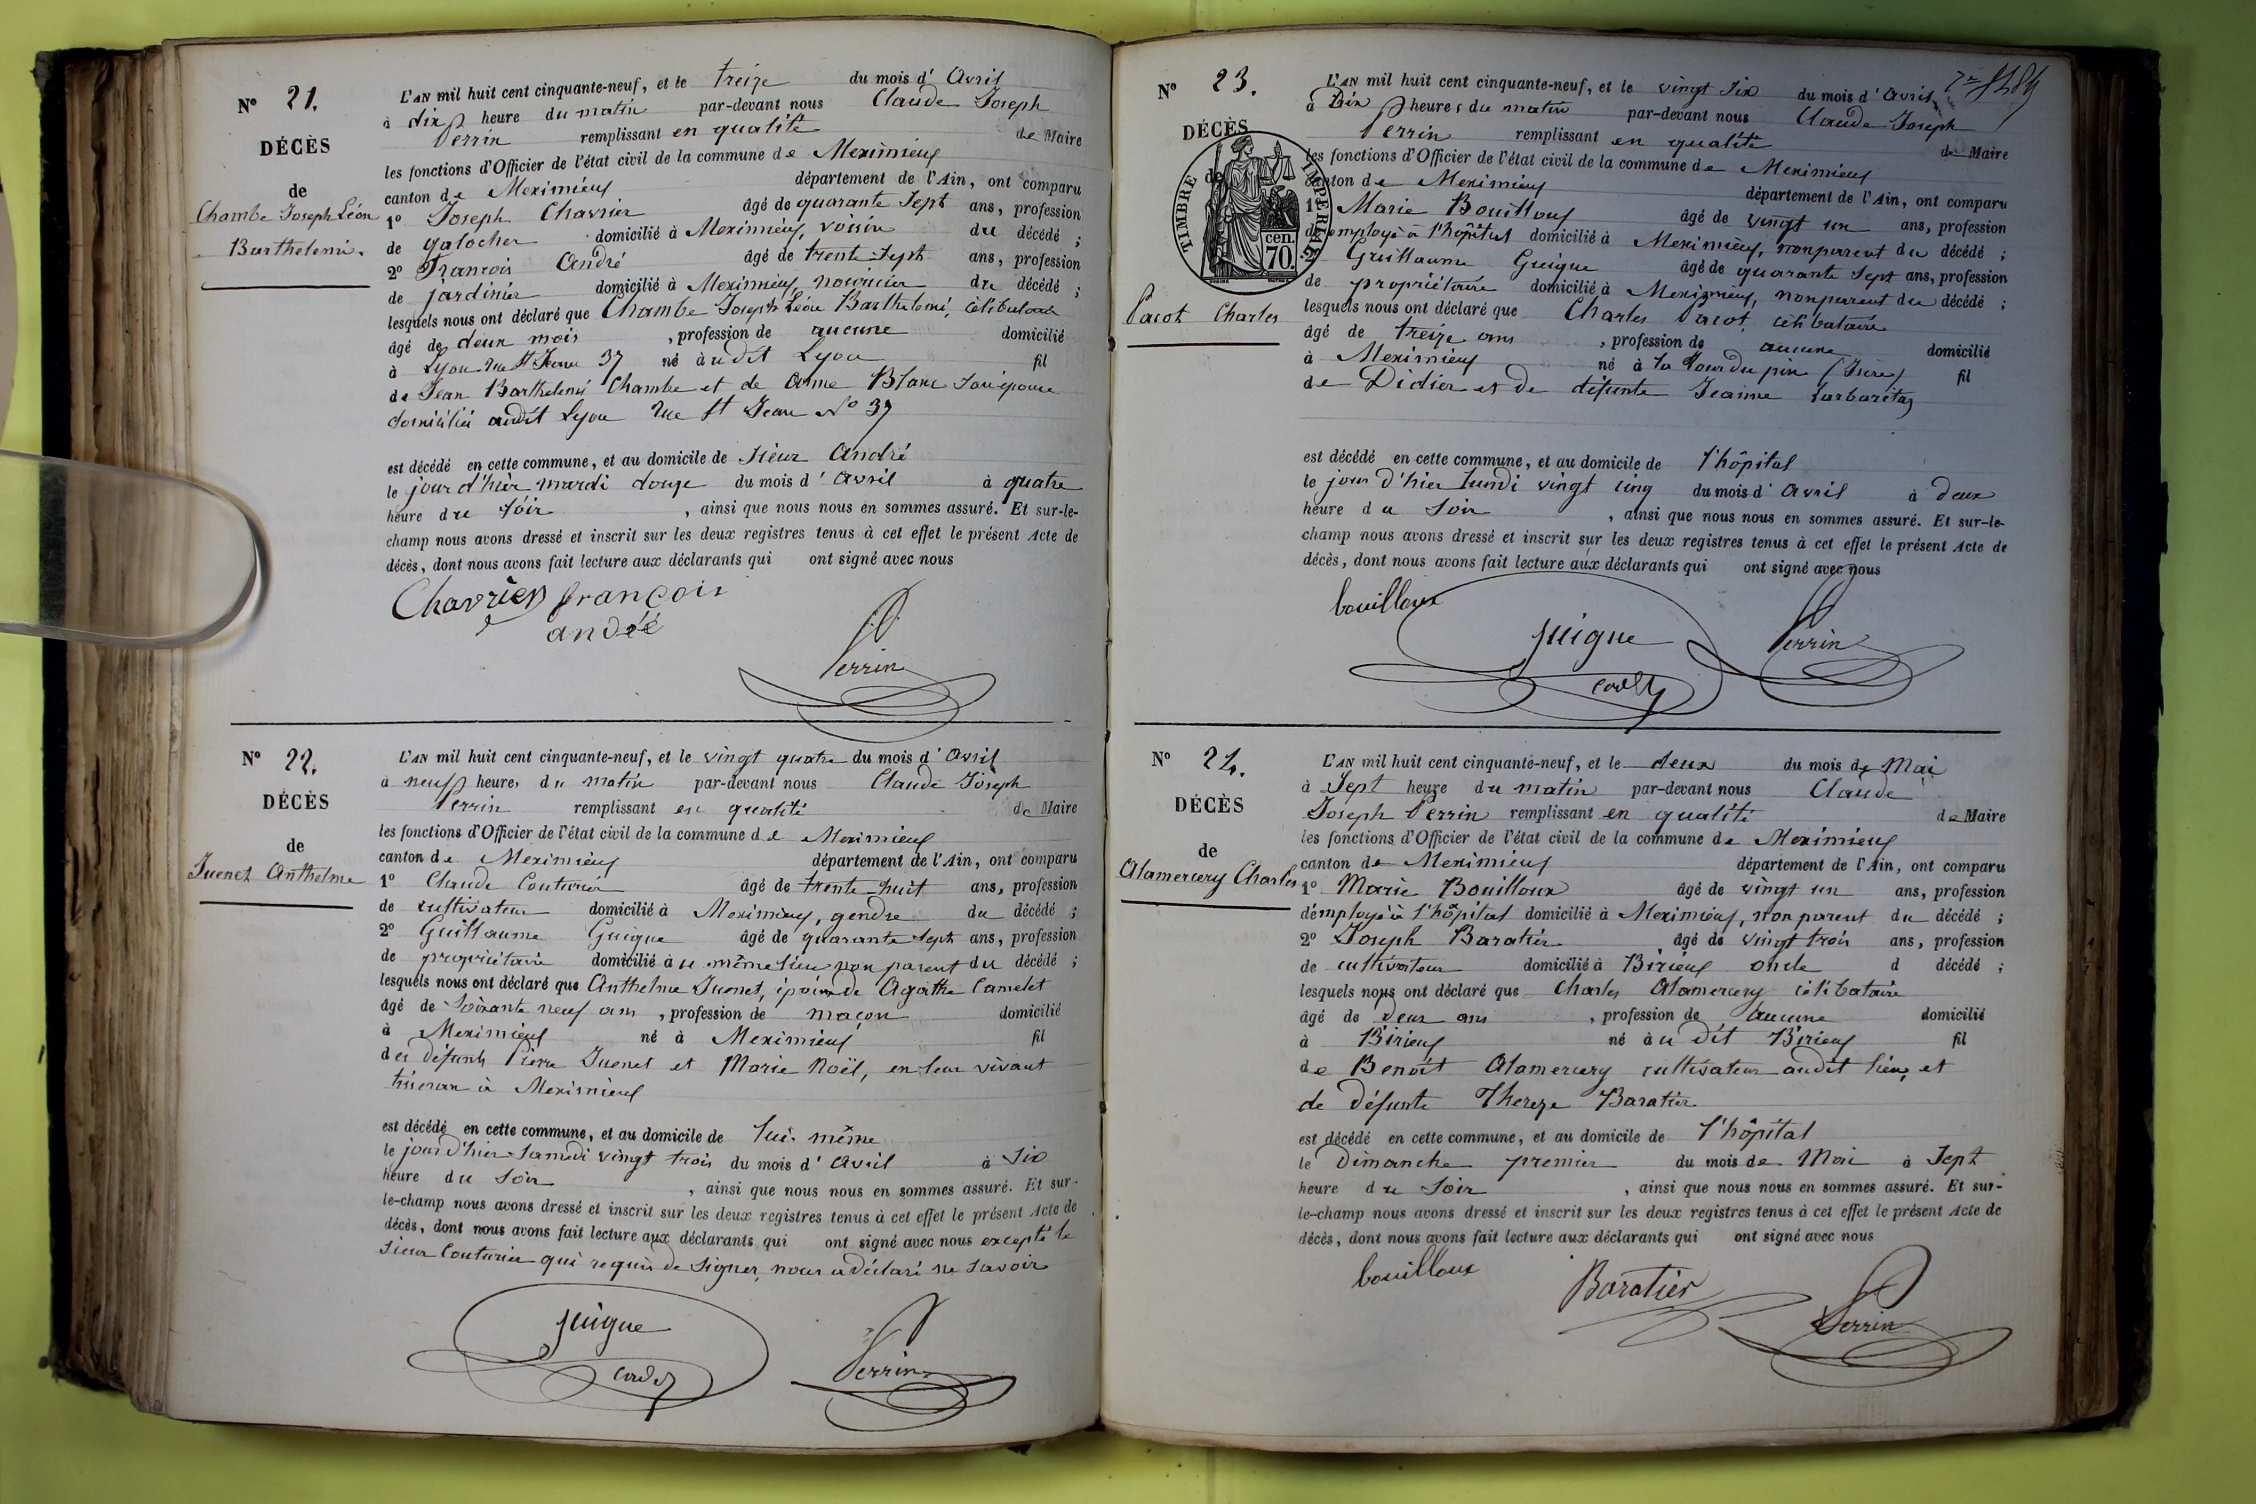 N° 21.
DÉCÈS
de
Chambe Joseph Léon
Barthelemi.
L'AN mil huit cent cinquante-neuf, et le treize du mois d'Avril
à dix heure du matin par-devant nous Claude Joseph
Perrin remplissant en qualité de Maire
les fonctions d'Officier de l'état civil de la commune de Meximieux
canton de Meximieux département de l'Ain, ont comparu
1° Joseph Chavrier âgé de quarante sept ans, profession
de galocher domicilié à Meximieux, voisin du décédé ;
2° François André âgé de trente sept ans, profession
de jardinier domicilié à Meximieux, nourricier du décédé ;
lesquels nous ont déclaré que Chambe Joseph Léon Barthelemi, célibataire
âgé de deux mois , profession de aucune domicilié
à Lyon rue St Jean 37 né à udit Lyon fil
de Jean Barthelemi Chambe et de Anne Blanc son épouse
domiciliés audit Lyon rue St Jean N° 37
est décédé en cette commune, et au domicile de sieur André
le jour d'hier mardi douze du mois d'Avril à quatre
heure du soir , ainsi que nous nous en sommes assuré. Et sur-le-
champ nous avons dressé et inscrit sur les deux registres tenus à cet effet le présent Acte de
décès, dont nous avons fait lecture aux déclarants qui ont signé avec nous
Chavrier françois
andré
Perrin
N° 22.
DÉCÈS
de
Juenet Anthelme
L'AN mil huit cent cinquante-neuf, et le vingt quatre du mois d'Avril
à neuf heures du matin par-devant nous Claude Joseph
Perrin remplissant en qualité de Maire
les fonctions d'Officier de l'état civil de la commune de Meximieux
canton de Meximieux département de l'Ain, ont comparu
1° Claude Couturier âgé de trente huit ans, profession
de cultivateur domicilié à Meximieux, gendre du décédé ;
2° Guillaume Guigue âgé de quarante sept ans, profession
de propriétaire domicilié à u même lieu non parent du décédé ;
lesquels nous ont déclaré que Anthelme Juenet, époux de Agathe Camelet
âgé de soixante neuf ans , profession de maçon domicilié
à Meximieux né à Meximieux fil
des défunts Pierre Juenet et Marie Noël, en leur vivant
à Meximieux
est décédé en cette commune, et au domicile de lui-même
le jour d'hier samedi vingt trois du mois d'Avril à six
heure du soir , ainsi que nous nous en sommes assuré. Et sur-
le-champ nous avons dressé et inscrit sur les deux registres tenus à cet effet le présent Acte de
décès, dont nous avons fait lecture aux déclarants qui ont signé avec nous excepté le
sieur Couturier qui requis de signer, nous a déclaré ne savoir
guigue
Perrin
N° 23.
DÉCÈS
de
TIMBRE IMPERIAL
cen.
70.
Pacot Charles
L'AN mil huit cent cinquante-neuf, et le vingt six du mois d'Avril
à Dix heures du matin par-devant nous Claude Joseph
Perrin remplissant en qualité de Maire
les fonctions d'Officier de l'état civil de la commune de Meximieux
canton de Meximieux département de l'Ain, ont comparu
1° Marie Bouilloux âgé de vingt un ans, profession
d'employé à l'hôpital domicilié à Meximieux, non parent du décédé ;
Guillaume Guigue âgé de quarante sept ans, profession
de propriétaire domicilié à Meximieux, non parent du décédé ;
lesquels nous ont déclaré que Charles Pacot, célibataire
âgé de treize ans , profession de aucune domicilié
à Meximieux né à la Tour du pin (Isère) fil
de Didier et de défunte Jeanne Barbaritas
est décédé en cette commune, et au domicile de l'hôpital
le jour d'hier lundi vingt cinq du mois d'Avril à deux
heure du soir , ainsi que nous nous en sommes assuré. Et sur-le-
champ nous avons dressé et inscrit sur les deux registres tenus à cet effet le présent Acte de
décès, dont nous avons fait lecture aux déclarants qui ont signé avec nous
bouilloux
guigue
Perrin
N° 24.
DÉCÈS
de
Alamercery Charles
L'AN mil huit cent cinquante-neuf, et le deux du mois de Mai
à Sept heure du matin par-devant nous Claude
Joseph Perrin remplissant en qualité de Maire
les fonctions d'Officier de l'état civil de la commune de Meximieux
canton de Meximieux département de l'Ain, ont comparu
1° Marie Bouilloux âgé de vingt un ans, profession
d'employé à l'hôpital domicilié à Meximieux, non parent du décédé ;
2° Joseph Baratier âgé de vingt trois ans, profession
de cultivateur domicilié à Birieux oncle d décédé ;
lesquels nous ont déclaré que Charles Alamercery célibataire
âgé de Deux ans , profession de aucune domicilié
à Birieux né à u dit Birieux fil
de Benoît Alamercery cultivateur audit lieu, et
de défunte Thereze Baratier
est décédé en cette commune, et au domicile de l'hôpital
le Dimanche premier du mois de Mai à Sept
heure du soir , ainsi que nous nous en sommes assuré. Et sur-
le-champ nous avons dressé et inscrit sur les deux registres tenus à cet effet le présent Acte de
décès, dont nous avons fait lecture aux déclarants qui ont signé avec nous
bouilloux
Baratier
Perrin